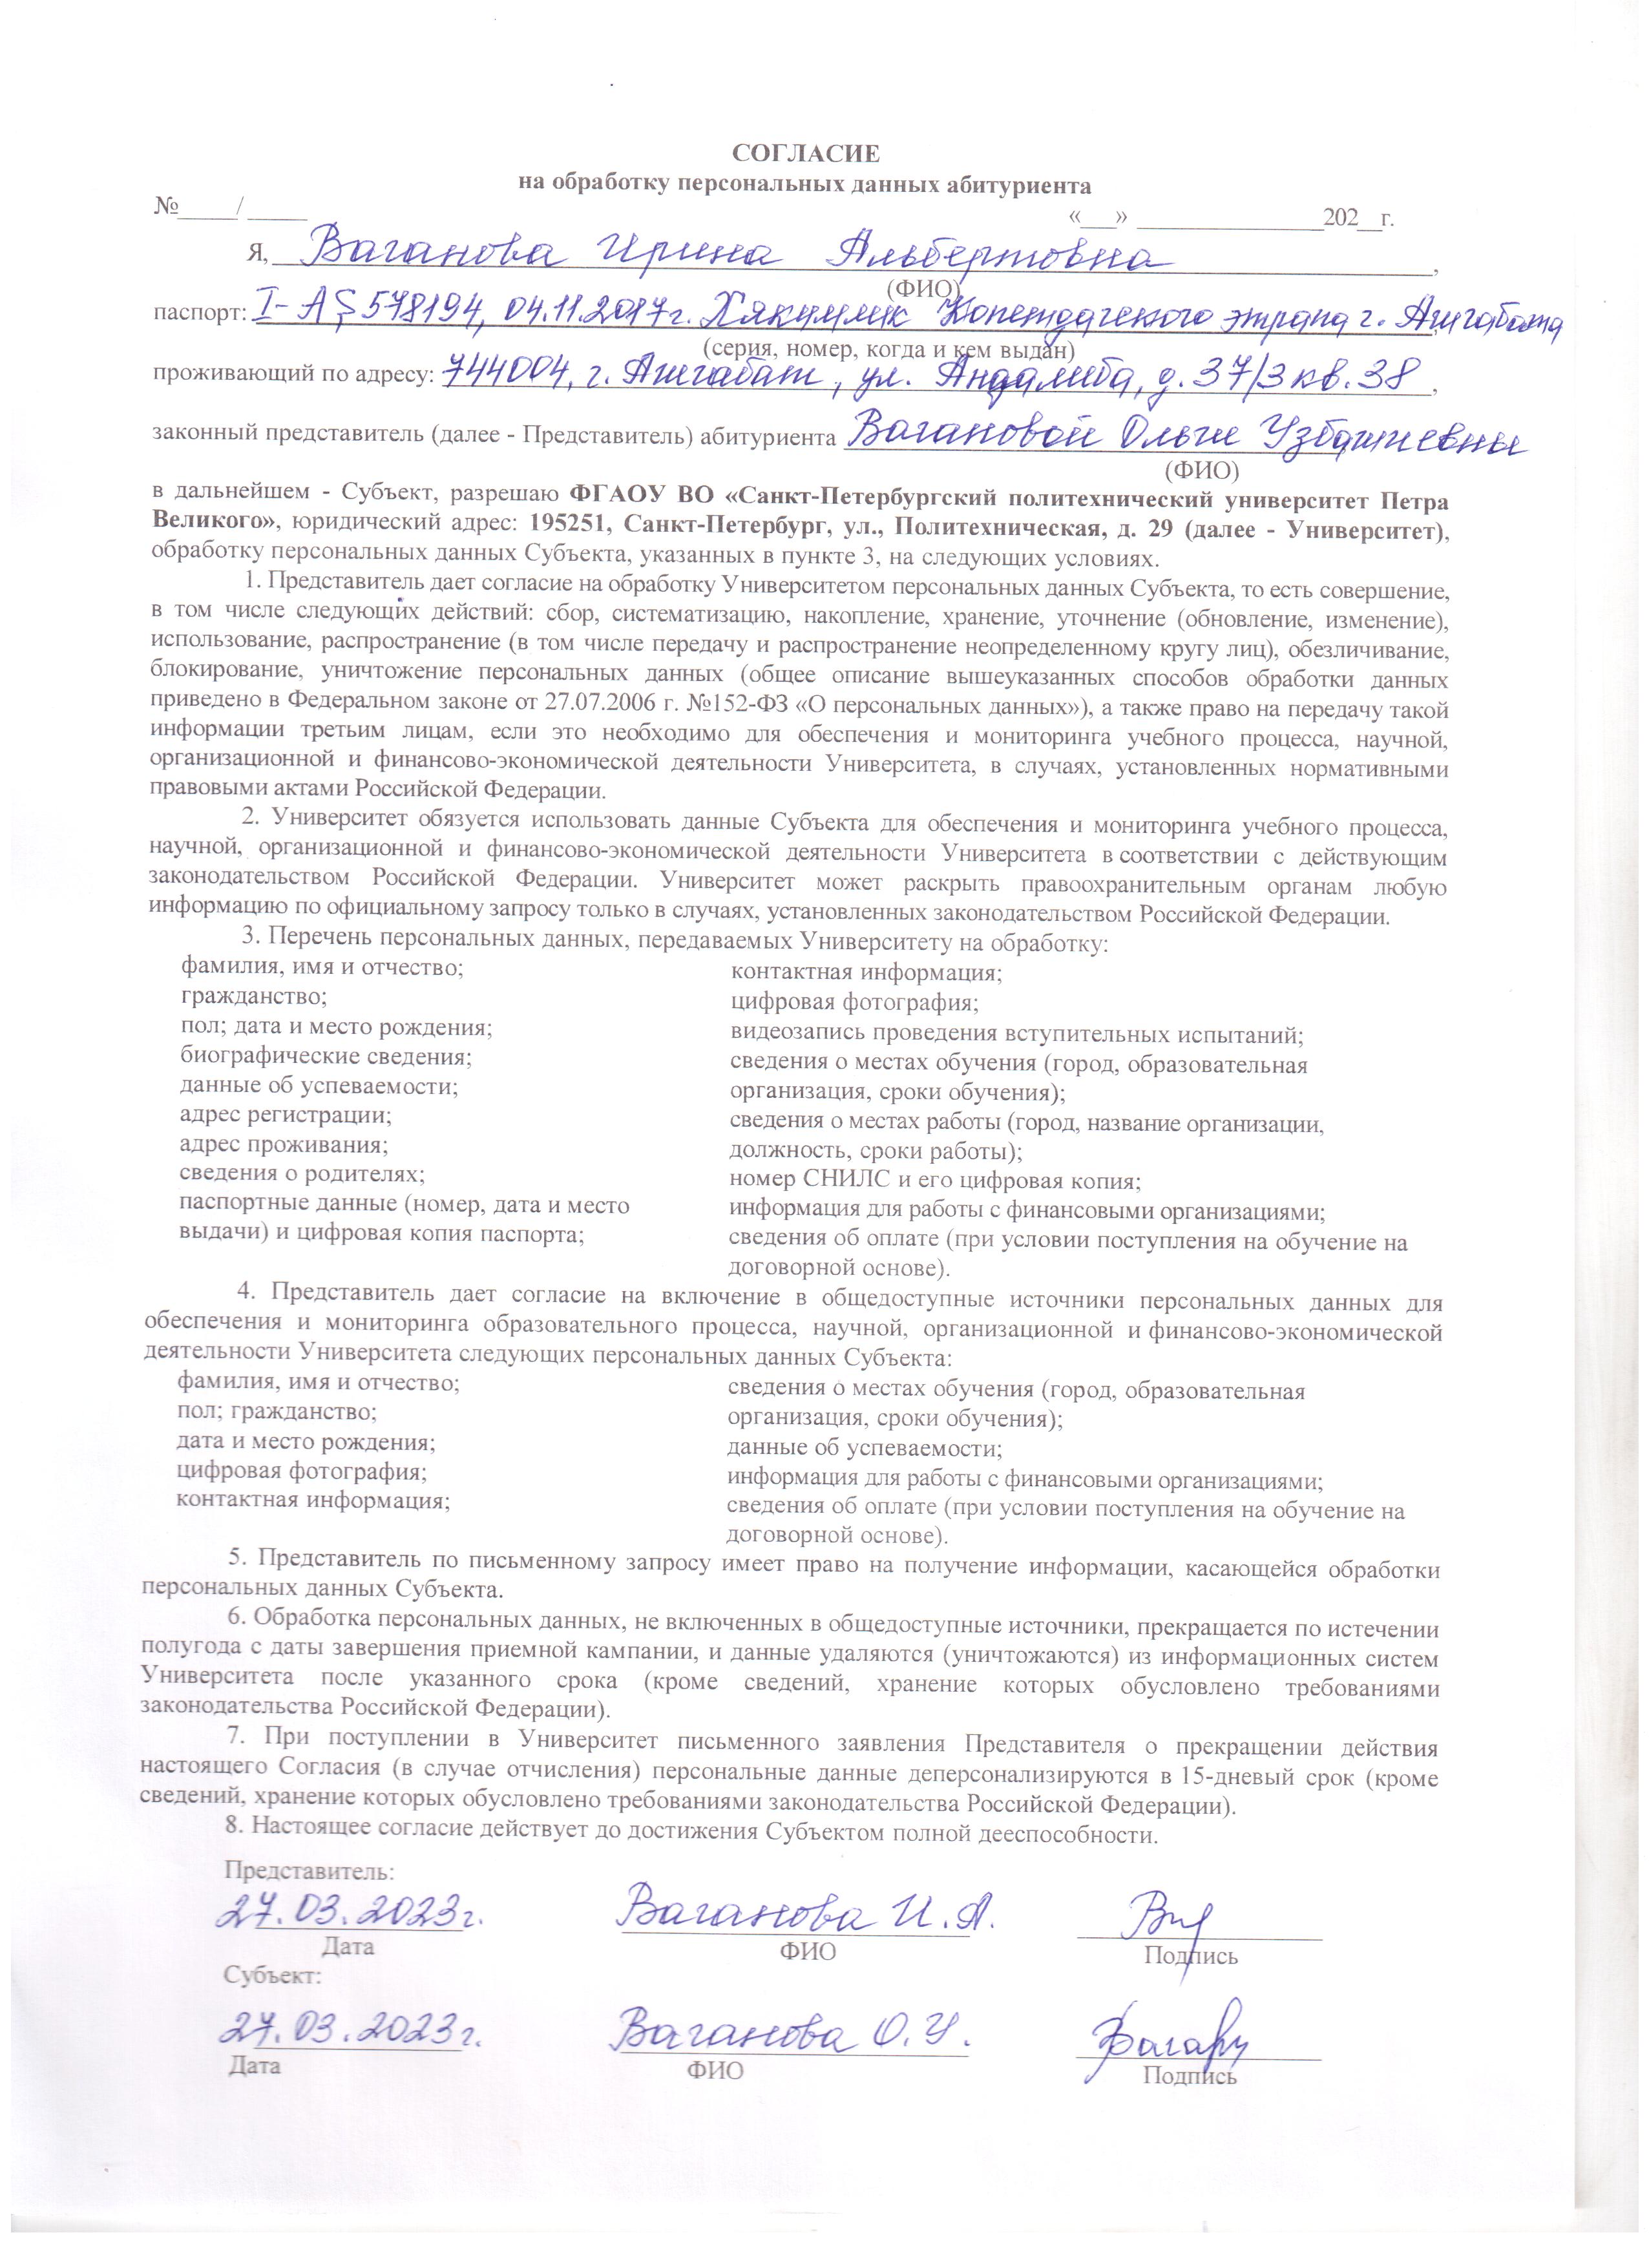 СОГЛАСИЕ
на обработку персональных данных абитуриента
№_____/ _____ «___» ________________202__г.
Я, Ваганова Ирина Альбертовна,
(ФИО)
паспорт: I-AŞ 578194, 04.11.2017г. Хякимлик Копетдагского этрапа г. Ашгабата
(серия, номер, когда и кем выдан)
проживающий по адресу: 744004, г. Ашгабат, ул. Андалиба, д. 37/3 кв. 38,
законный представитель (далее - Представитель) абитуриента Вагановой Ольги
(ФИО)
в дальнейшем - Субъект, разрешаю ФГАОУ ВО «Санкт-Петербургский политехнический университет Петра
Великого», юридический адрес: 195251, Санкт-Петербург, ул., Политехническая, д. 29 (далее - Университет),
обработку персональных данных Субъекта, указанных в пункте 3, на следующих условиях.
1. Представитель дает согласие на обработку Университетом персональных данных Субъекта, то есть совершение,
в том числе следующих действий: сбор, систематизацию, накопление, хранение, уточнение (обновление, изменение),
использование, распространение (в том числе передачу и распространение неопределенному кругу лиц), обезличивание,
блокирование, уничтожение персональных данных (общее описание вышеуказанных способов обработки данных
приведено в Федеральном законе от 27.07.2006 г. №152-ФЗ «О персональных данных»), а также право на передачу такой
информации третьим лицам, если это необходимо для обеспечения и мониторинга учебного процесса, научной,
организационной и финансово-экономической деятельности Университета, в случаях, установленных нормативными
правовыми актами Российской Федерации.
2. Университет обязуется использовать данные Субъекта для обеспечения и мониторинга учебного процесса,
научной, организационной и финансово-экономической деятельности Университета в соответствии с действующим
законодательством Российской Федерации. Университет может раскрыть правоохранительным органам любую
информацию по официальному запросу только в случаях, установленных законодательством Российской Федерации.
3. Перечень персональных данных, передаваемых Университету на обработку:
фамилия, имя и отчество;
гражданство;
пол; дата и место рождения;
биографические сведения;
данные об успеваемости;
адрес регистрации;
адрес проживания;
сведения о родителях;
паспортные данные (номер, дата и место
выдачи) и цифровая копия паспорта;
контактная информация;
цифровая фотография;
видеозапись проведения вступительных испытаний;
сведения о местах обучения (город, образовательная
организация, сроки обучения);
сведения о местах работы (город, название организации,
должность, сроки работы);
номер СНИЛС и его цифровая копия;
информация для работы с финансовыми организациями;
сведения об оплате (при условии поступления на обучение на
договорной основе).
4. Представитель дает согласие на включение в общедоступные источники персональных данных для
обеспечения и мониторинга образовательного процесса, научной, организационной и финансово-экономической
деятельности Университета следующих персональных данных Субъекта:
фамилия, имя и отчество;
пол; гражданство;
дата и место рождения;
цифровая фотография;
контактная информация;
сведения о местах обучения (город, образовательная
организация, сроки обучения);
данные об успеваемости;
информация для работы с финансовыми организациями;
сведения об оплате (при условии поступления на обучение на
договорной основе).
5. Представитель по письменному запросу имеет право на получение информации, касающейся обработки
персональных данных Субъекта.
6. Обработка персональных данных, не включенных в общедоступные источники, прекращается по истечении
полугода с даты завершения приемной кампании, и данные удаляются (уничтожаются) из информационных систем
Университета после указанного срока (кроме сведений, хранение которых обусловлено требованиями
законодательства Российской Федерации).
7. При поступлении в Университет письменного заявления Представителя о прекращении действия
настоящего Согласия (в случае отчисления) персональные данные деперсонализируются в 15-дневый срок (кроме
сведений, хранение которых обусловлено требованиями законодательства Российской Федерации).
8. Настоящее согласие действует до достижения Субъектом полной дееспособности.
Представитель:
27.03.2023г. Ваганова И.А.
Дата ФИО Подпись
Субъект:
27.03.2023г. Ваганова О.У.
Дата ФИО Подпись